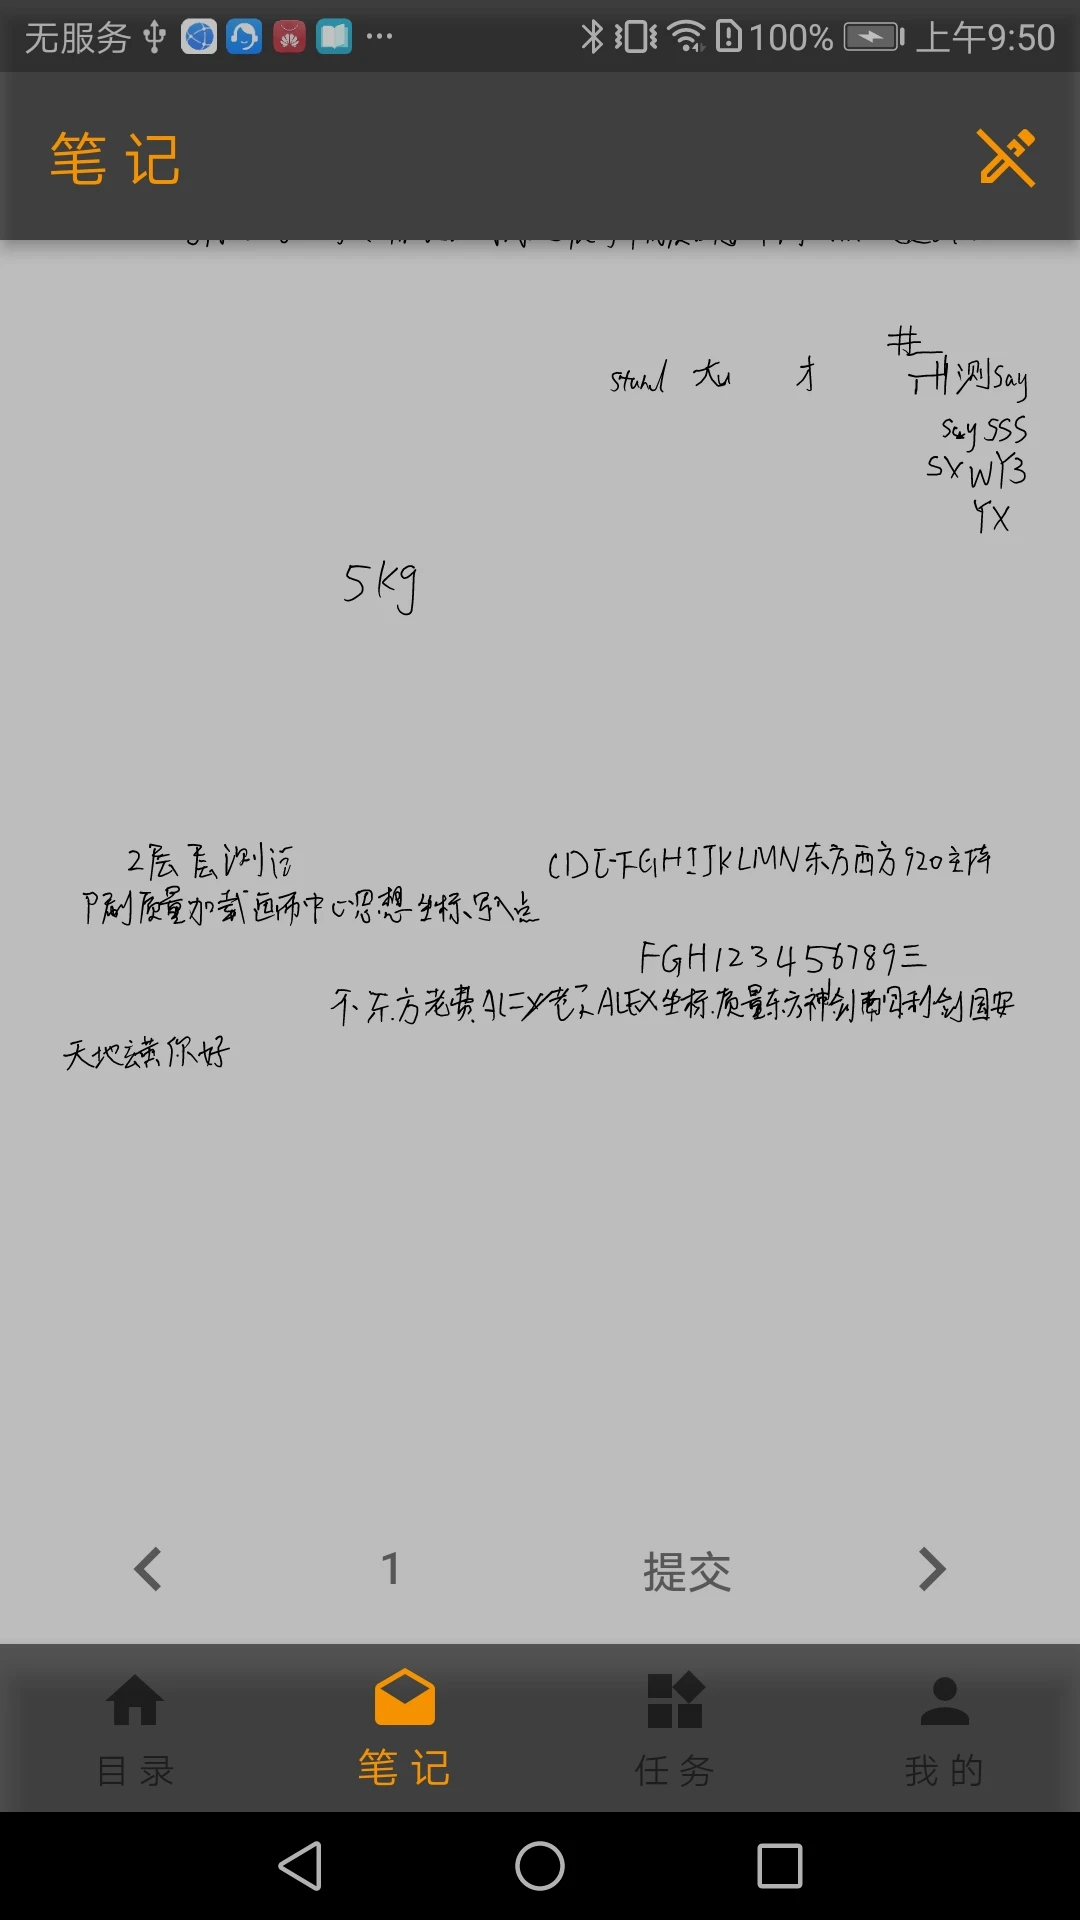 无服务 100% 上午9:50
笔记
大 才
测say
say SSS
SXWY3
YX
5kg
2层层测
CDEFGHIJKLMN东方西方920主阵
刷质量加载画布中心思想坐标写入点
FGH123456789三
不东方老费ALEX老ALEX坐标质量东方神剑利剑国安
天地你好
1 提交
目录 笔记 任务 我的